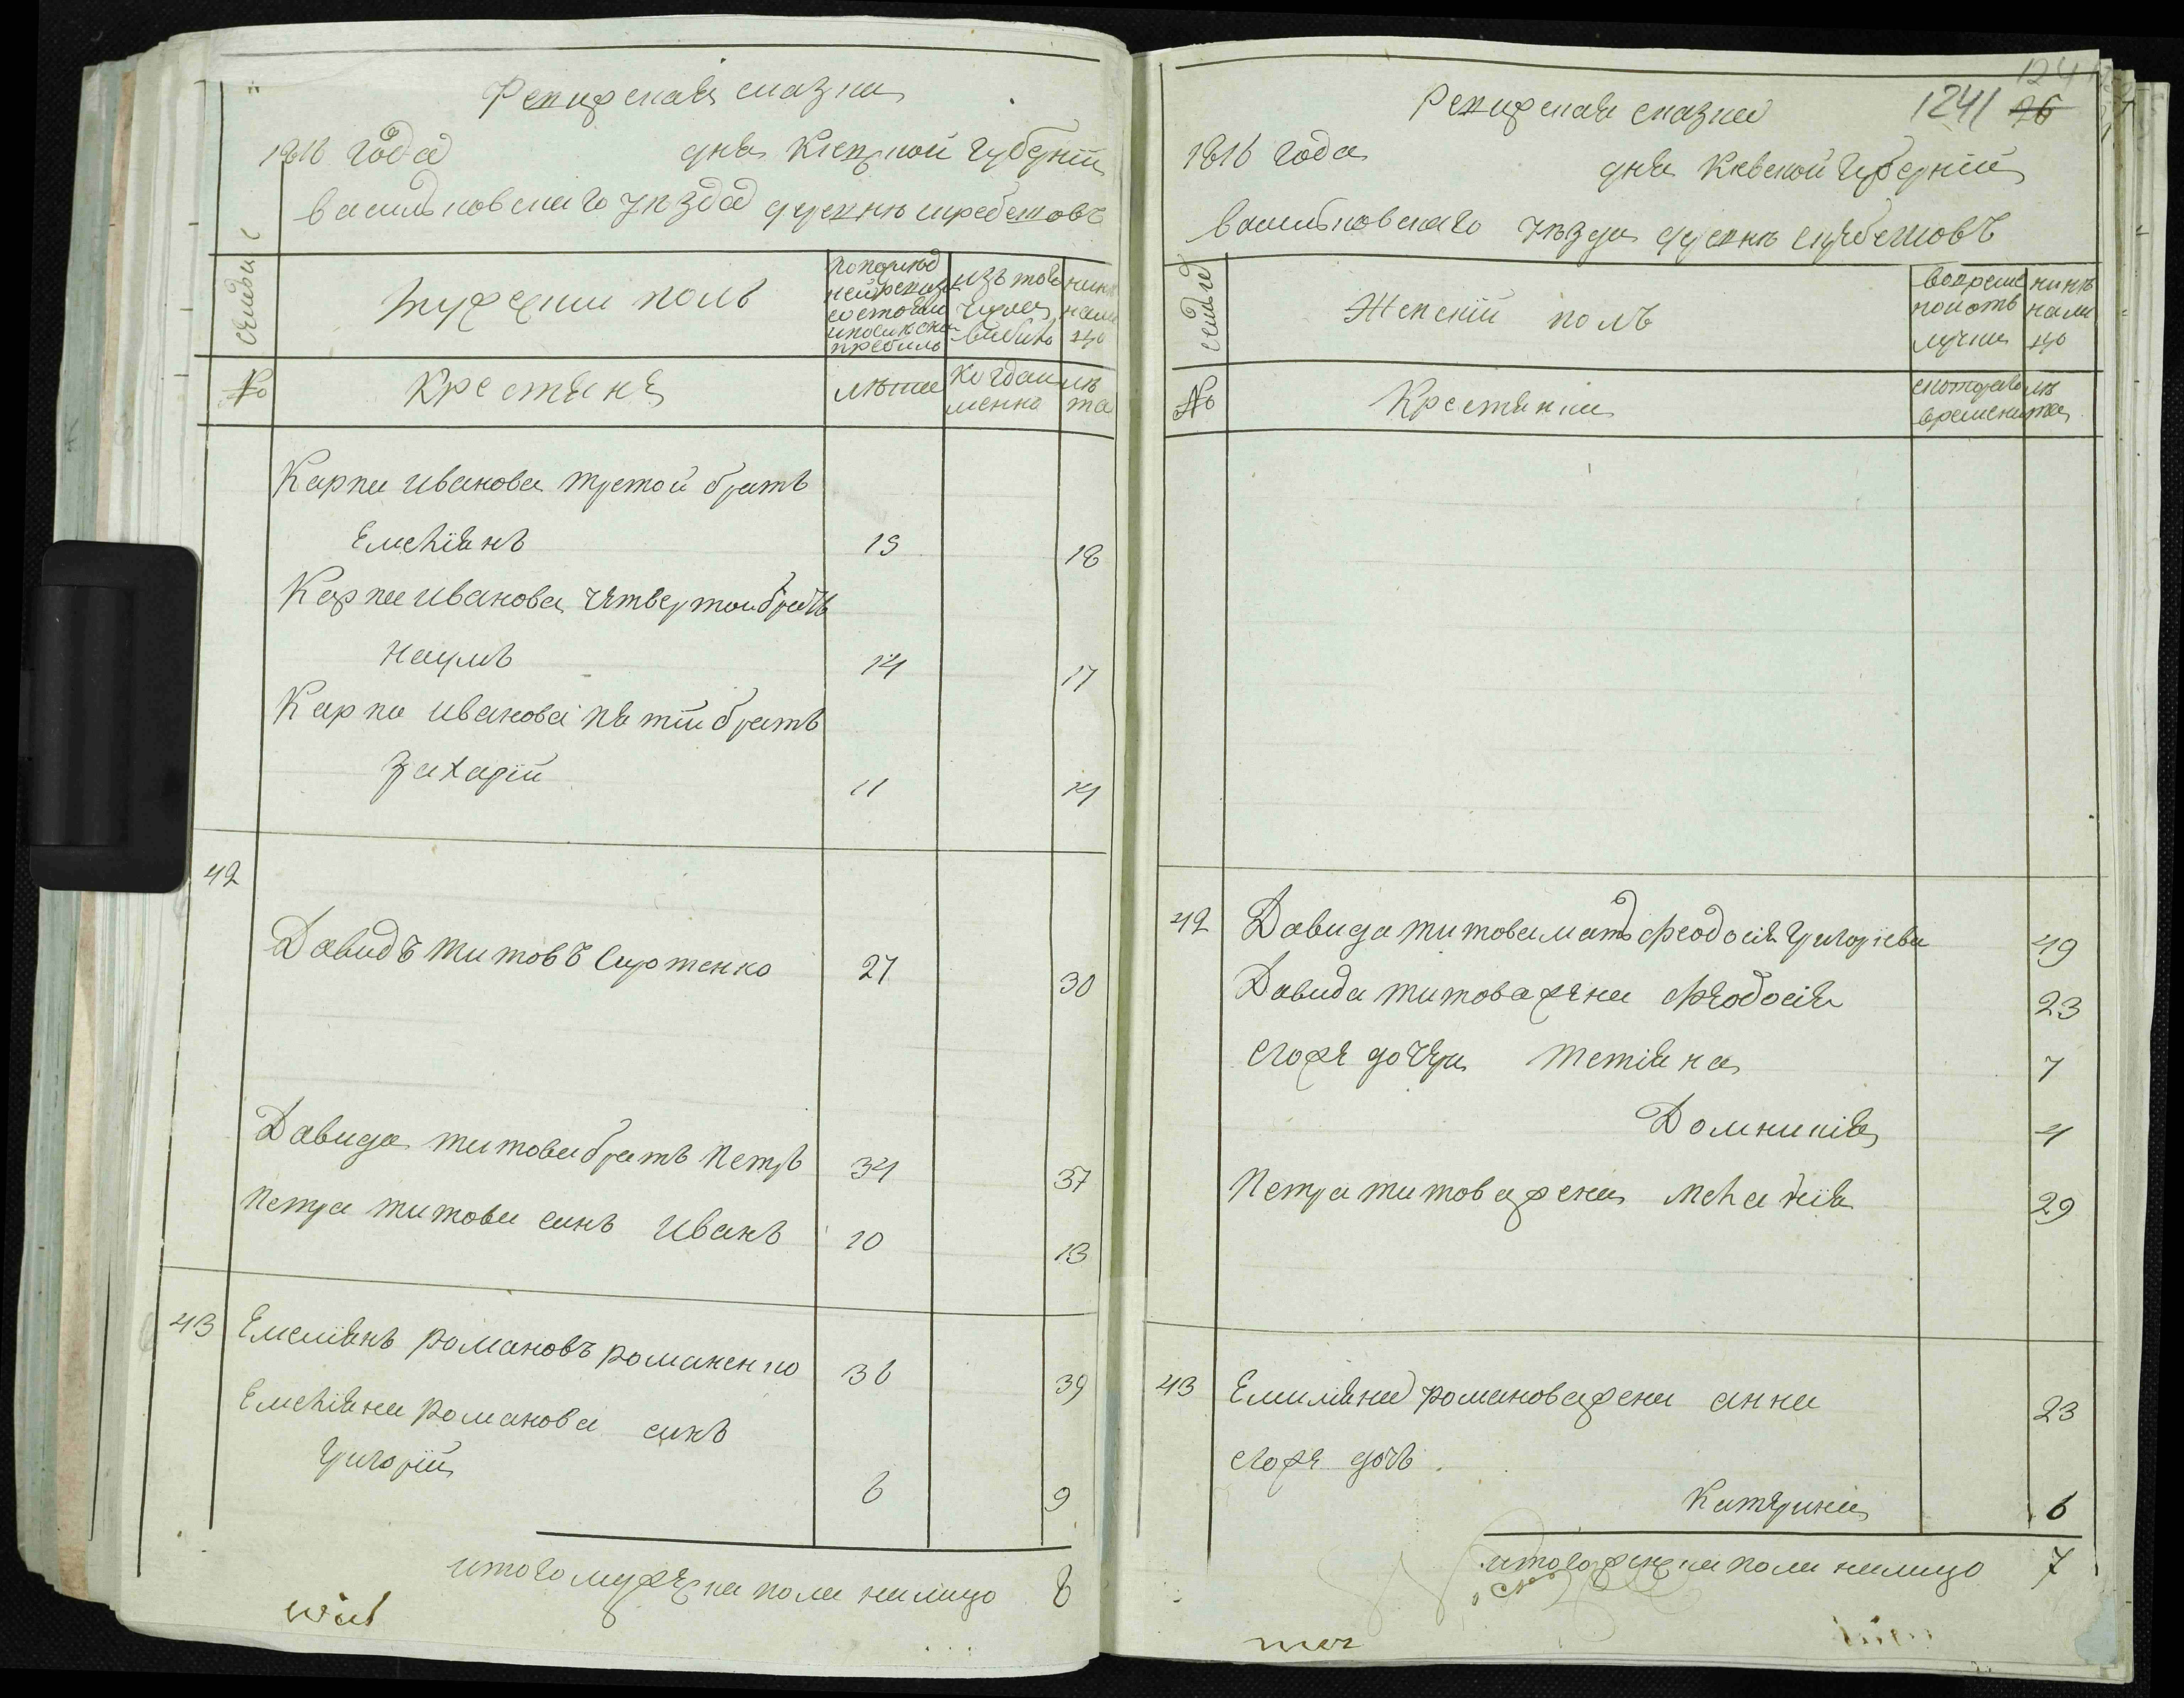 Ревизская сказка
1816 года дня Киевской губернии
Васильковскаго уезда деревне
семьи
Мужеский полъ
по последней ревизии состояло и после оной прибыло
изъ того числа выбыло
ныне налицо
№
крестяне
лета
когда именно
лета
Карпа Иванова третой братъ
Емелиянъ 15 18
Карпа Иванова четвертой братъ
Наумъ 14 17
Карпа Иванова пятий братъ
Захарий 11 14
42
Давидъ Титовъ 27 30
Давида Титова братъ Петръ 34 37
Петра Титова синъ Иванъ 10 13
43 Емелиянъ Романовъ Романенко 36 39
Емелияна Романова синъ
Григорий 6 9
итого мужеска пола налицо 8
124
1241 76
Ревизская сказка
1816 года
дня Киевской губернии
Васильковскаго уезда деревне
семьи
Женский полъ
во временной отлучке
ныне налицо
№
Крестянки
с которого времени
лета
42 Давида Титова мать Феодосия Григориева 49
Давида Титова жена Феодосия 23
его же дочери Тетияна 7
Домникия 4
Петра Титова жена Мелания 29
43 Емилияна Романова жена Анна 23
его же дочь
Катерина 6
итого женска пола налицо 7